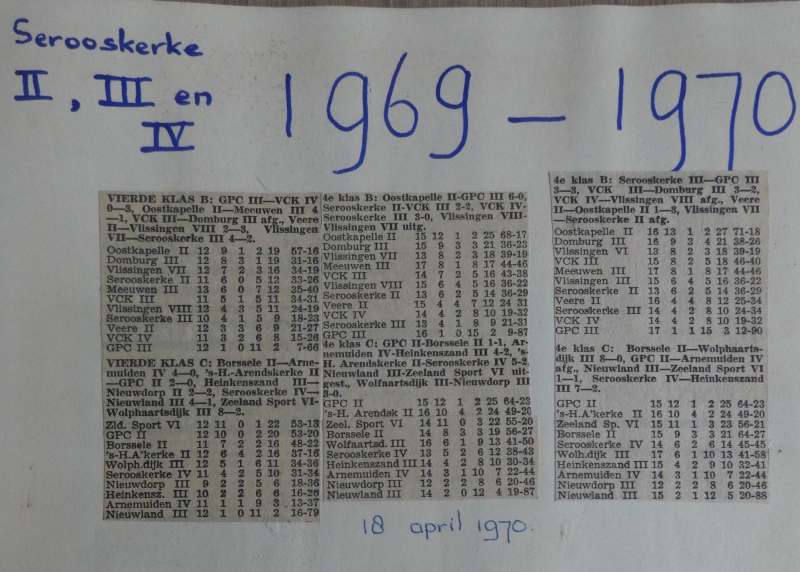 Serooskerke
II, III en
IV
1969 – 1970
VIERDE KLAS B: GPC III—VCK IV
0—3, Oostkapelle II—Meeuwen III 4
—1, VCK III—Domburg III afg., Veere
II—Vlissingen VIII 2—3, Vlissingen
VII—Serooskerke III 4—2.
Oostkapelle II 12 9 1 2 19 57-16
Domburg III 12 8 3 1 19 31-16
Vlissingen VII 12 7 2 3 16 34-19
Serooskerke II 11 6 0 5 12 33-26
Meeuwen III 13 6 0 7 12 35-40
VCK III 11 5 1 5 11 34-31
Vlissingen VIII 12 4 3 5 11 24-19
Serooskerke III 10 4 1 5 9 18-23
Veere II 12 3 3 6 9 21-27
VCK IV 11 3 2 6 8 15-26
GPC III 12 1 0 11 2 7-66
VIERDE KLAS C: Borssele II—Arne-
muiden IV 4—0, 's-H.-Arendskerke II
—GPC II 2—0, Heinkenszand III—
Nieuwdorp II 2—2, Serooskerke IV—
Nieuwland III 4—1, Zeeland Sport VI-
Wolphaartsdijk III 8—2.
Zld. Sport VI 12 11 0 1 22 53-13
GPC II 12 10 0 2 20 53-20
Borssele II 11 7 2 2 16 48-22
's-H.A'kerke II 12 6 4 2 16 37-16
Wolph.dijk III 12 5 1 6 11 34-36
Serooskerke IV 11 4 2 5 10 31-34
Nieuwdorp III 9 2 2 5 6 18-36
Heinkensz. III 10 2 2 6 6 16-26
Arnemuiden IV 11 1 1 9 3 13-37
Nieuwland III 12 1 0 11 2 16-79
4e klas B: Oostkapelle II-GPC III 6-0,
Serooskerke II-VCK III 2-2, VCK IV-
Serooskerke III 3-0, Vlissingen VIII-
Vlissingen VII uitg.
Oostkapelle II 15 12 1 2 25 68-17
Domburg III 15 9 3 3 21 36-23
Vlissingen VII 13 8 2 3 18 39-19
Meeuwen III 17 8 1 8 17 44-46
VCK III 14 7 2 5 16 43-38
Vlissingen VIII 15 6 4 5 16 36-22
Serooskerke II 13 6 2 5 14 36-29
Veere II 15 4 4 7 12 24 31
VCK IV 14 4 2 8 10 19-32
Serooskerke III 13 4 1 8 9 21-31
GPC III 16 1 0 15 2 9-87
4e klas C: GPC II-Borssele II 1-1, Ar-
nemuiden IV-Heinkenszand III 4-2, 's-
H. Arendskerke II-Serooskerke IV 5-2,
Nieuwland III-Zeeland Sport VI uit-
gest., Wolfaartsdijk III-Nieuwdorp III
3-0.
GPC II 15 12 1 2 25 64-23
's-H. Arendsk II 16 10 4 2 24 49-20
Zeel. Sport VI 14 11 0 3 22 55-20
Borssele II 14 8 3 3 19 56-27
Wolfaartsd. III 16 6 1 9 13 41-50
Serooskerke IV 13 5 2 6 12 38-43
Heinkenszand III 14 4 2 8 10 30-34
Arnemuiden IV 14 3 1 10 7 22-44
Nieuwdorp III 12 2 2 8 6 20-46
Nieuwland III 14 2 0 12 4 19-87
4e klas B: Serooskerke III—GPC III
3—3, VCK III—Domburg III 3—2,
VCK IV—Vlissingen VIII afg., Veere
II—Oostkapelle II 1—3, Vlissingen VII
—Serooskerke II afg.
Oostkapelle II 16 13 1 2 27 71-18
Domburg III 16 9 3 4 21 38-26
Vlissingen VI 13 8 2 3 18 39-19
VCK III 15 8 2 5 18 46-40
Meeuwen III 17 8 1 8 17 44-46
Vlissingen III 15 6 4 5 16 36-22
Serooskerke II 13 6 2 5 14 36-29
Veere II 16 4 4 8 12 25-34
Serooskerke III 14 4 2 8 10 24-34
VCK IV 14 4 2 8 10 19-32
GPC III 17 1 1 15 3 12-90
4e klas C: Borssele II—Wolphaarts-
dijk III 8—0, GPC II—Arnemuiden IV
afg., Nieuwland III—Zeeland Sport VI
1—1, Serooskerke IV—Heinkenszand
III 7—2.
GPC II 15 12 1 2 25 64-23
's-H.A'kerke II 16 10 4 2 24 49-20
Zeeland Sp. VI 15 11 1 3 23 56-21
Borssele II 15 9 3 3 21 64-27
Serooskerke IV 14 6 2 6 14 45-45
Wolh.dijk III 17 6 1 10 13 41-58
Heinkenszand III 15 4 2 9 10 32-41
Arnemuiden IV 14 3 1 10 7 22-44
Nieuwdorp III 12 2 2 8 6 20-46
Nieuwland III 15 2 1 12 5 20-88
18 april 1970.